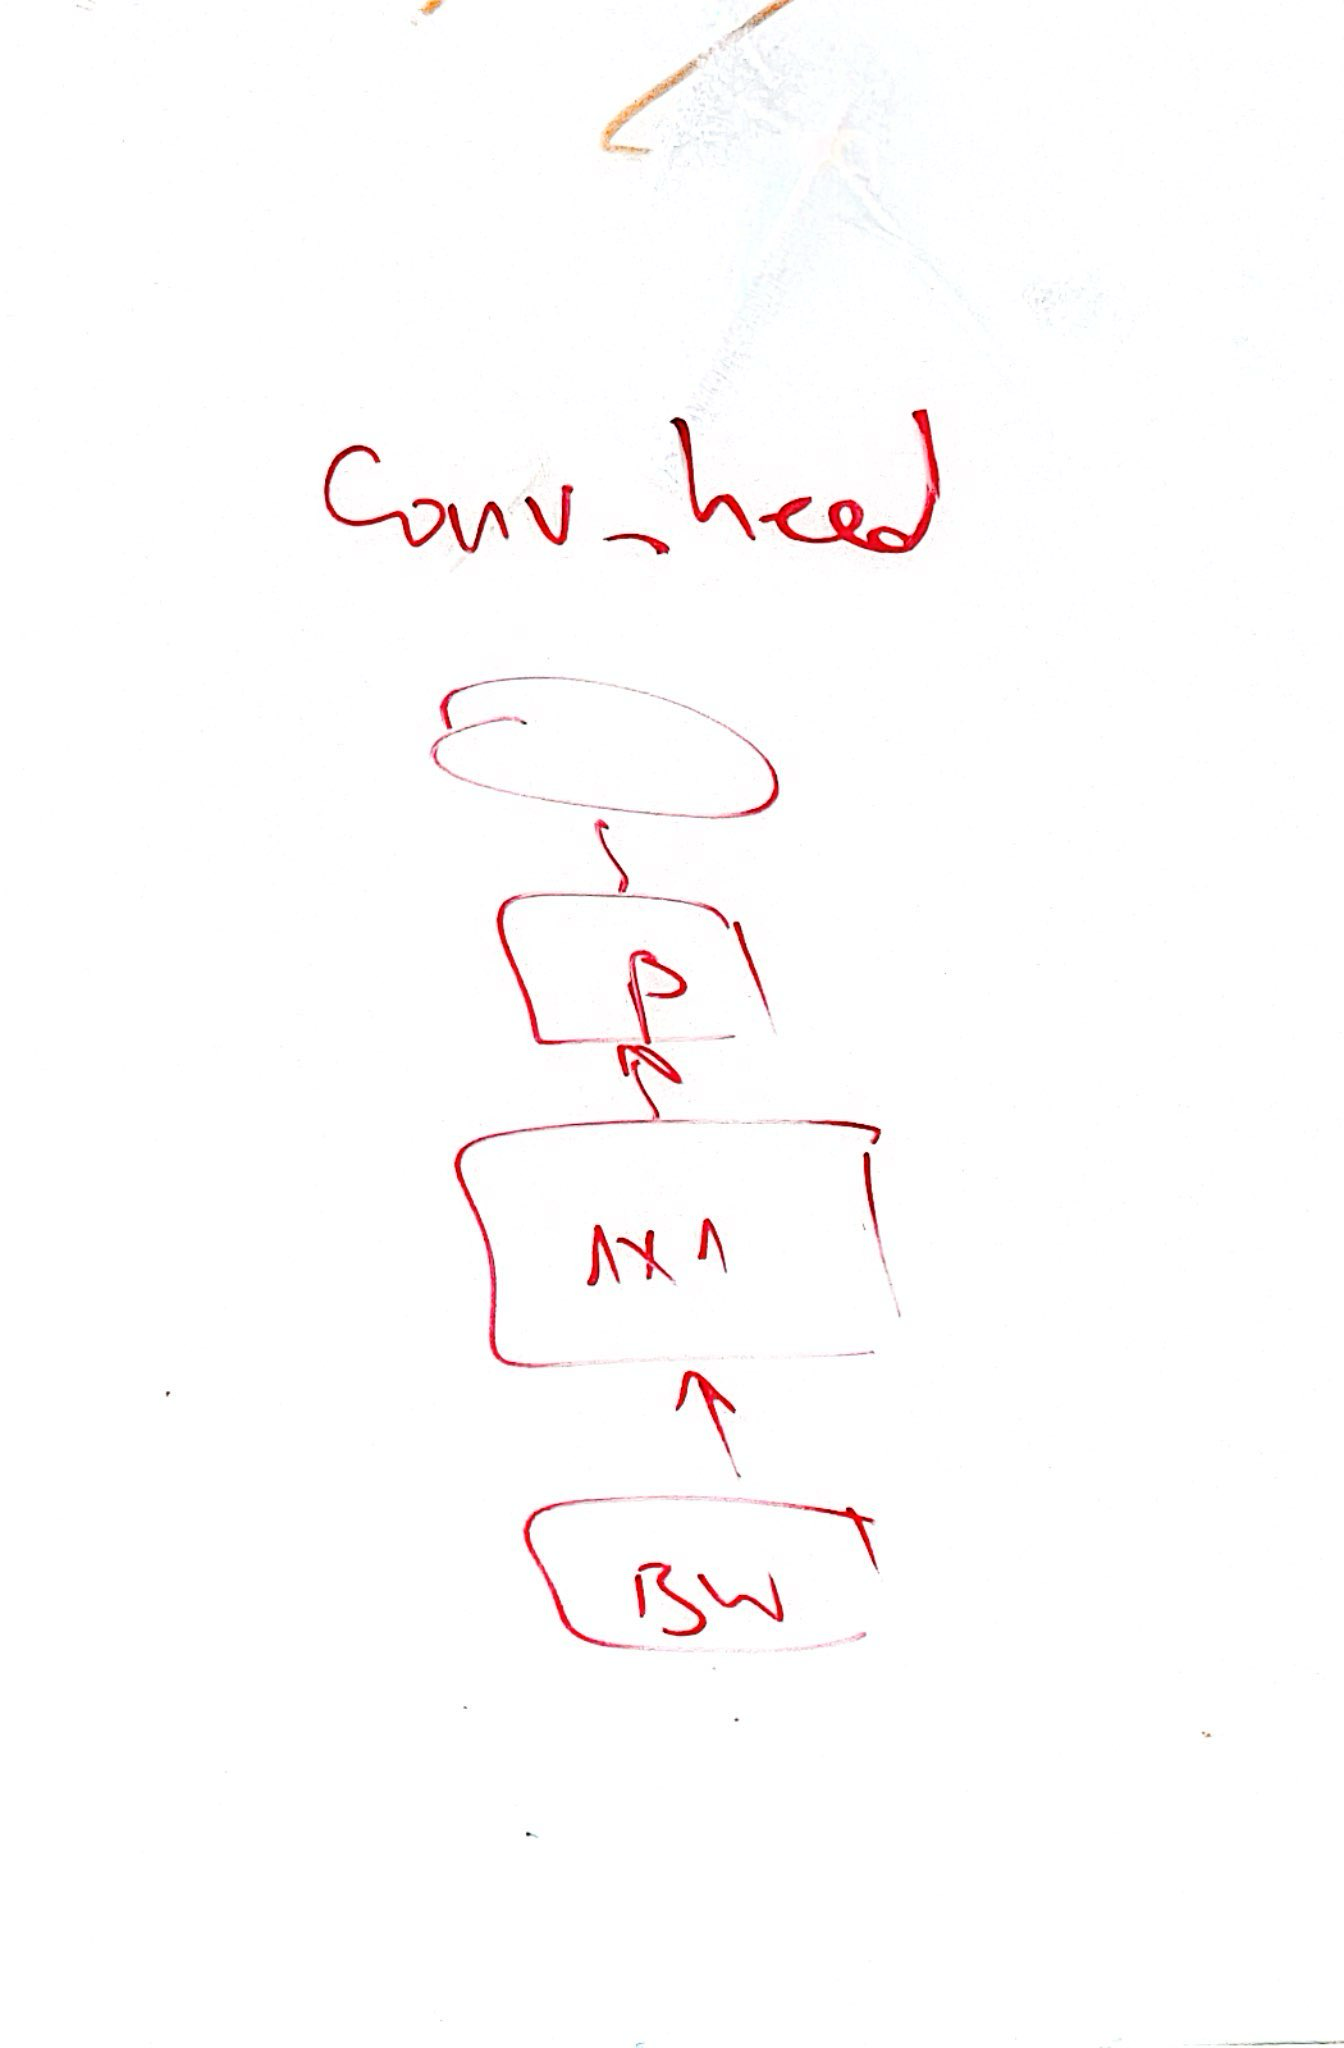 Conv_head
P
1x1
BW